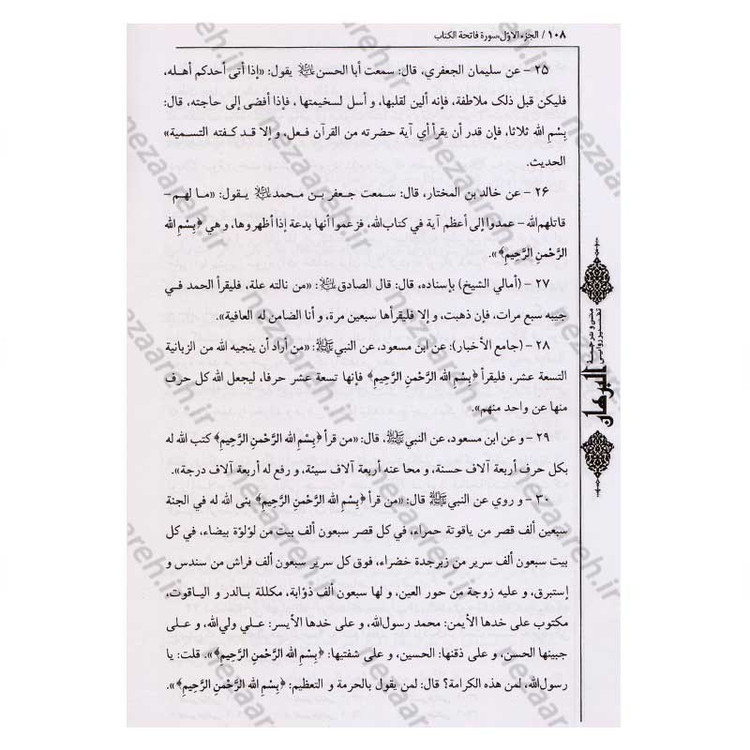 ١٠٨ / الجزء الاوّل،سورة فاتحة الكتاب
٢٥ – عن سليمان الجعفري، قال: سمعت أبا الحسن يقول: «إذا أتى أحدكم أهله،
فليكن قبل ذلك ملاطفة، فإنه ألين لقلبها، و أسل لسخيمتها ، فإذا أفضى إلى حاجته، قال:
بِسْمِ الله ثلاثا، فإن قدر أن يقرأ أي آية حضرته من القرآن فعل، و إلا قد كفته التسمية»
الحديث.
٢٦ – عن خالد بن المختار، قال: سمعت جعفر بن محمد يقول: «ما لهم–
قاتلهم الله – عمدوا إلى أعظم آية في كتاب الله، فزعموا أنها بدعة إذا أظهروها، و هي ﴿بِسْمِ الله
الرَّحْمنِ الرَّحِيمِ﴾».
٢٧ – (أمالي الشيخ) بإسناده، قال: قال الصادق: «من نالته علة، فليقرأ الحمد في
جيبه سبع مرات، فإن ذهبت، و إلا فليقرأها سبعين مرة، و أنا الضامن له العافية».
٢٨ – (جامع الأخبار): عن ابن مسعود، عن النبي ﷺ: «من أراد أن ينجيه الله من الزبانية
التسعة عشر، فليقرأ ﴿بِسْمِ الله الرَّحْمنِ الرَّحِيمِ﴾ فإنها تسعة عشر حرفا، ليجعل الله كل حرف
منها عن واحد منهم».
٢٩ – و عن ابن مسعود، عن النبي ﷺ، قال: «من قرأ ﴿بِسْمِ الله الرَّحْمنِ الرَّحِيمِ﴾ كتب الله له
بكل حرف أربعة آلاف حسنة، و محا عنه أربعة آلاف سيئة، و رفع له أربعة آلاف درجة».
٣٠ – و روي عن النبي ﷺ قال: «من قرأ ﴿بِسْمِ الله الرَّحْمنِ الرَّحِيمِ﴾ بنى الله له في الجنة
سبعين ألف قصر من ياقوتة حمراء، في كل قصر سبعون ألف بيت من لؤلؤة بيضاء، في كل
بيت سبعون ألف سرير من زبرجدة خضراء، فوق كل سرير سبعون ألف فراش من سندس و
إستبرق، و عليه زوجة من حور العين، و لها سبعون ألف ذؤابة، مكللة بالدر و الياقوت،
مكتوب على خدها الأيمن: محمد رسول الله، و على خدها الأيسر: علي ولي الله، و على
جبينها الحسن، و على ذقنها: الحسين، و على شفتيها: ﴿بِسْمِ الله الرَّحْمنِ الرَّحِيمِ﴾». قلت: يا
رسول الله، لمن هذه الكرامة؟ قال: لمن يقول بالحرمة و التعظيم: ﴿بِسْمِ الله الرَّحْمنِ الرَّحِيمِ﴾».
متن و ترجمة
تفسير روايى
البرهان
nezaareh.ir